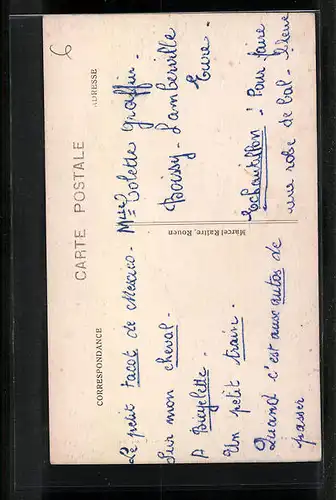 6
CARTE POSTALE
CORRESPONDANCE
ADRESSE
Le petit tacot de Mexico.
Sur mon cheval.
A Bicyclette.
Un petit train.
Quand c'est aux autos de
passer
Marcel Ratire, Rouen
Melle Colette Graffin.
Boissy-Lamberville
Eure.
Echantillon : Pour faire
une robe de bal-